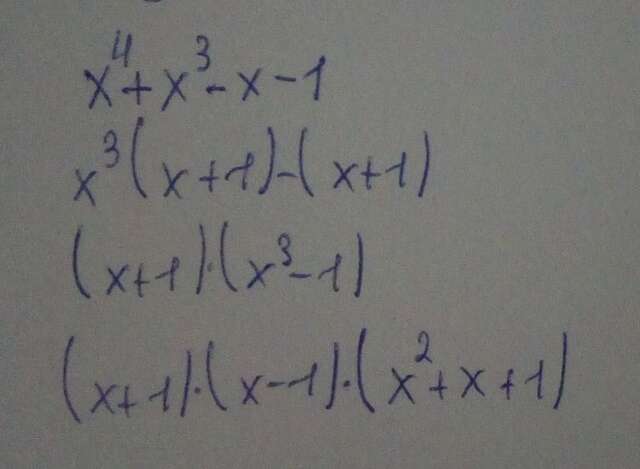 x⁴+x³-x-1
x³(x+1)-(x+1)
(x+1)·(x³-1)
(x+1)·(x-1)·(x²+x+1)